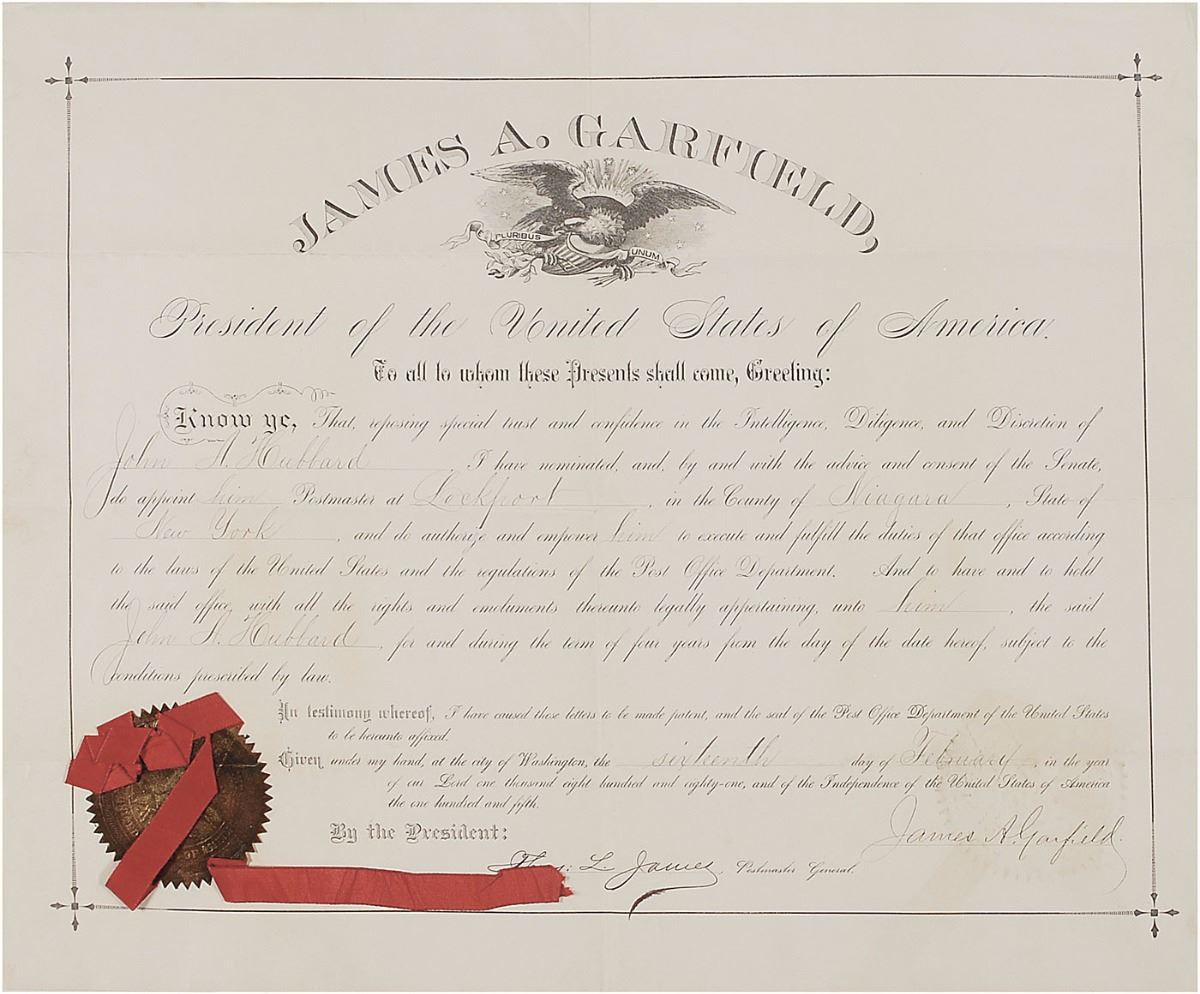 JAMES A. GARFIELD,
PLURIBUS UNUM
President of the United States of America.
To all to whom these Presents shall come, Greeting:
Know ye, That, reposing special trust and confidence in the Intelligence, Diligence, and Discretion of
John A. Hubbard, I have nominated, and, by and with the advice and consent of the Senate,
do appoint him Postmaster at Lockport, in the County of Niagara, State of
New York, and do authorize and empower him to execute and fulfill the duties of that office according
to the laws of the United States and the regulations of the Post Office Department. And to have and to hold
the said office, with all the rights and emoluments thereunto legally appertaining, unto him, the said
John A. Hubbard, for and during the term of four years from the day of the date hereof, subject to the
conditions prescribed by law.
In testimony whereof, I have caused these letters to be made patent, and the seal of the Post Office Department of the United States
to be hereunto affixed.
Given under my hand, at the city of Washington, the sixteenth day of February, in the year
of our Lord one thousand eight hundred and eighty-one, and of the Independence of the United States of America
the one hundred and fifth.
By the President:
James A. Garfield.
Thos: L. James, Postmaster General.